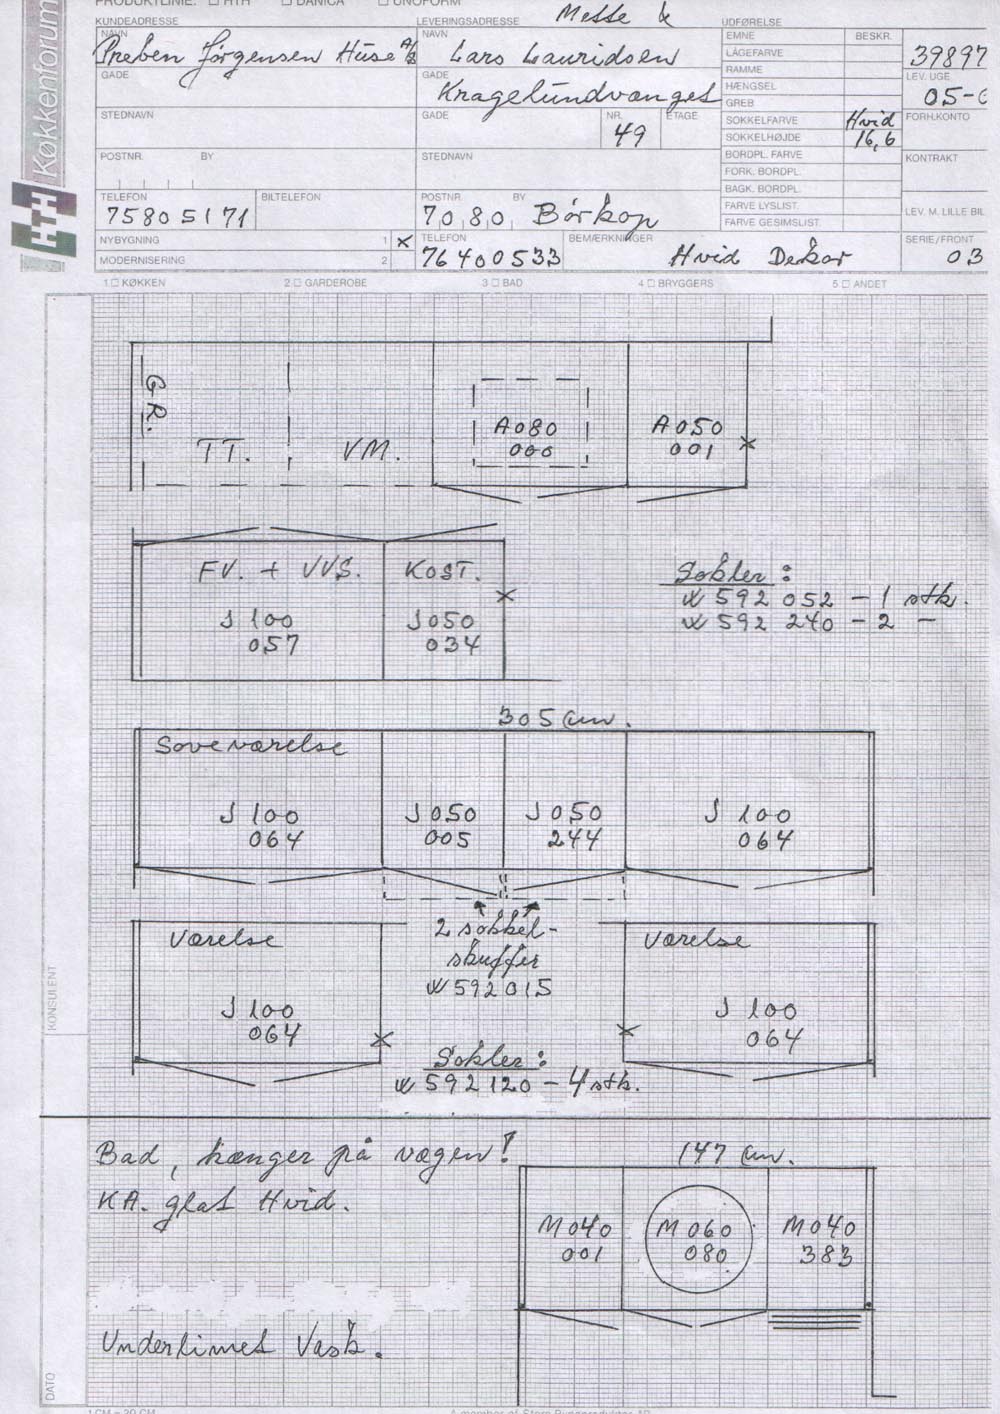 PRODUKTLINIE: HTH DANICA UNOFORM
HTH Køkkenforum
KUNDEADRESSE
NAVN
Preben Jørgensen Huse A/S
GADE
STEDNAVN
POSTNR. BY
TELEFON BILTELEFON
75805171
NYBYGNING 1 x
MODERNISERING 2
LEVERINGSADRESSE
NAVN
Lars Lauridsen
GADE
Kragelundvænget
GADE NR. ETAGE
49
STEDNAVN
POSTNR. BY
7080 Børkop
TELEFON BEMÆRKNINGER
76400533 Hvid Dekor
UDFØRELSE
EMNE BESKR.
LÅGEFARVE
RAMME
HÆNGSEL
GREB
SOKKELFARVE Hvid
SOKKELHØJDE 16,6
BORDPL. FARVE
FORK. BORDPL.
BAGK. BORDPL.
FARVE LYSLIST.
FARVE GESIMSLIST.
39897
LEV. UGE
05-
FORH.KONTO
KONTRAKT
LEV. M. LILLE BIL
SERIE/FRONT
03
1 KØKKEN 2 GARDEROBE 3 BAD 4 BRYGGERS 5 ANDET
GR.
TT. VM.
A080
000
A050
001
FV. + VVS. KOST.
J 100
057
J050
034
Sokler:
592 052 - 1 stk.
592 240 - 2 -
305 cm.
Soveværelse
J 100
064
J 050
005
J 050
244
J 100
064
2 sokkel-
skuffer
592015
Værelse
J 100
064
Værelse
J 100
064
Sokler:
592120 - 4 stk.
KONSULENT
Bad, hænger på vægen!
KA. glat Hvid.
147 cm.
M040
001
M060
080
M040
383
Underlimet Vask.
DATO
1 CM = 20 CM